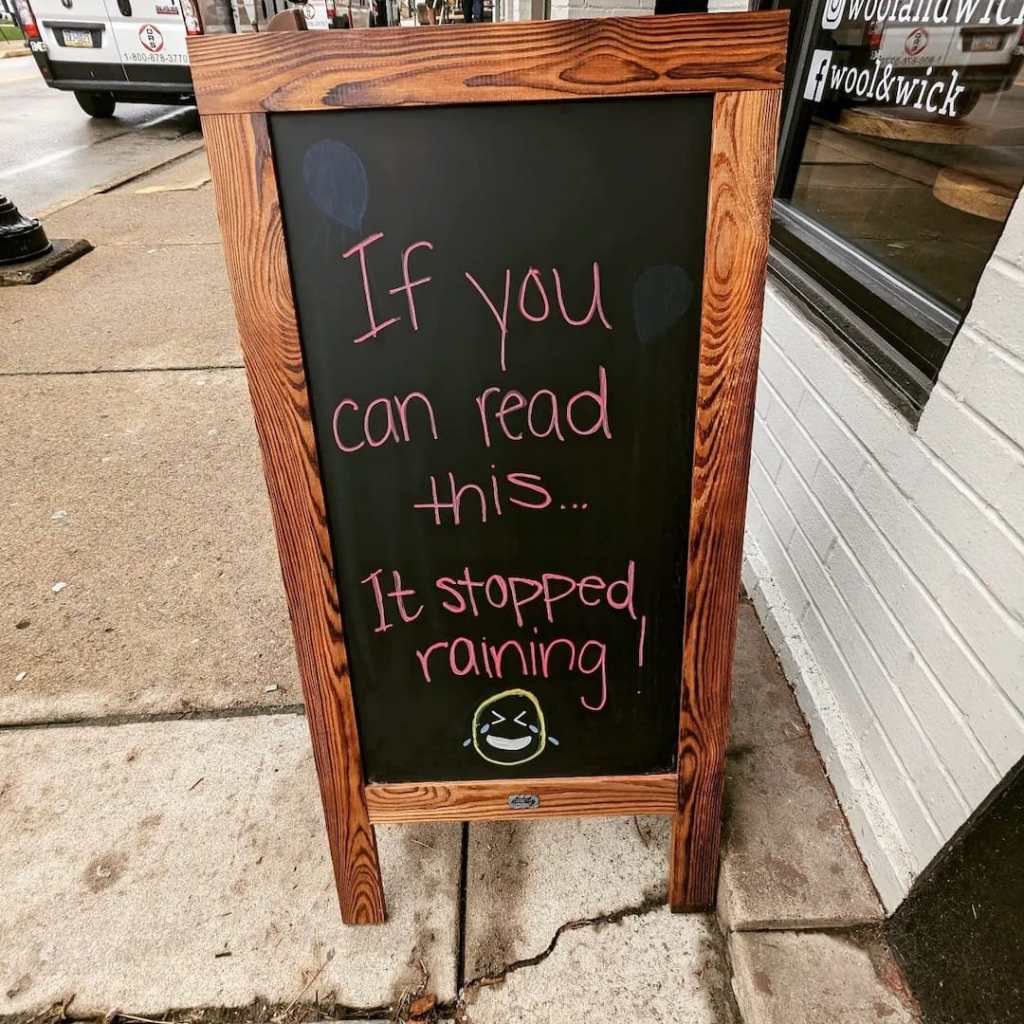 1-800-678-3770
woolandwick
wool&wick
If you
can read
this...
It stopped
raining!